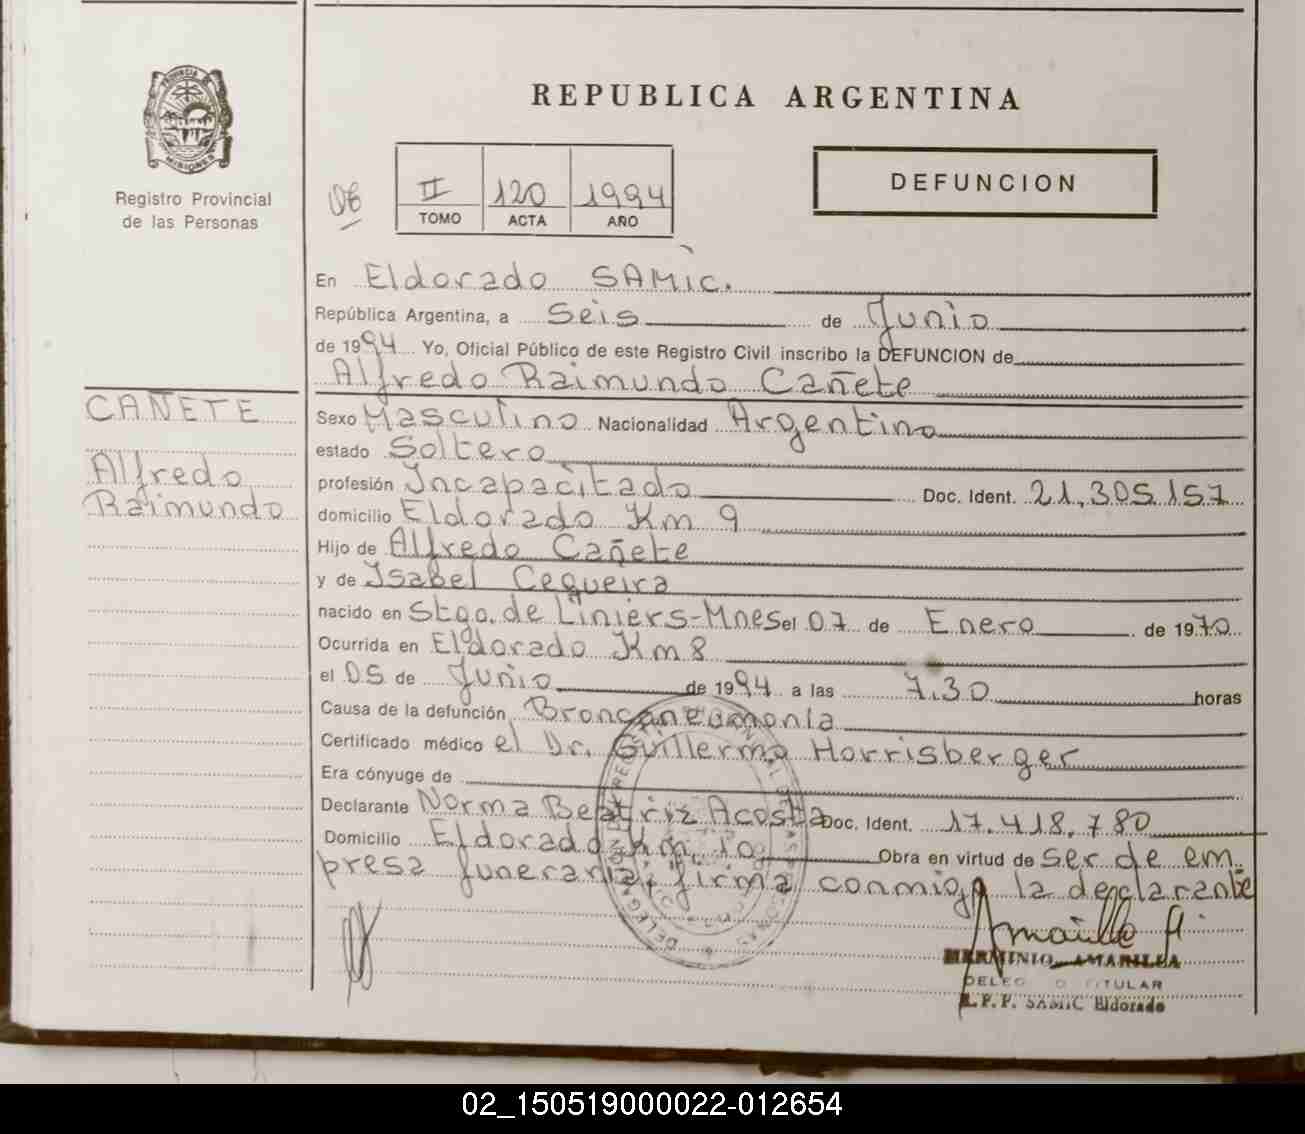 PROVINCIA DE
MISIONES
Registro Provincial
de las Personas
REPUBLICA ARGENTINA
DEFUNCION
II 120 1994
TOMO ACTA AÑO
En Eldorado SAMIC.
República Argentina, a Seis de Junio
de 1994 Yo, Oficial Público de este Registro Civil inscribo la DEFUNCION de
Alfredo Raimundo Cañete
CAÑETE
Alfredo
Raimundo
Sexo Masculino Nacionalidad Argentino
estado Soltero
profesión Incapacitado Doc. Ident. 21,305.157
domicilio Eldorado Km 9
Hijo de Alfredo Cañete
y de Isabel Cequeira
nacido en Stgo. de Liniers-Mnes el 07 de Enero de 1970
Ocurrida en Eldorado Km 8
el 05 de Junio de 1994 a las 7.30 horas
Causa de la defunción Bronconeumonia
Certificado médico el Dr. Guillermo Horrisberger
Era cónyuge de
Declarante Norma Beatriz Acosta Doc. Ident. 17.418.780
Domicilio Eldorado Km. 10 Obra en virtud de ser de em
presa funeraria; firma conmigo la declarante
HERMINIO AMARILLA
TITULAR
R.P.P. SAMIC Eldorado
02_150519000022-012654